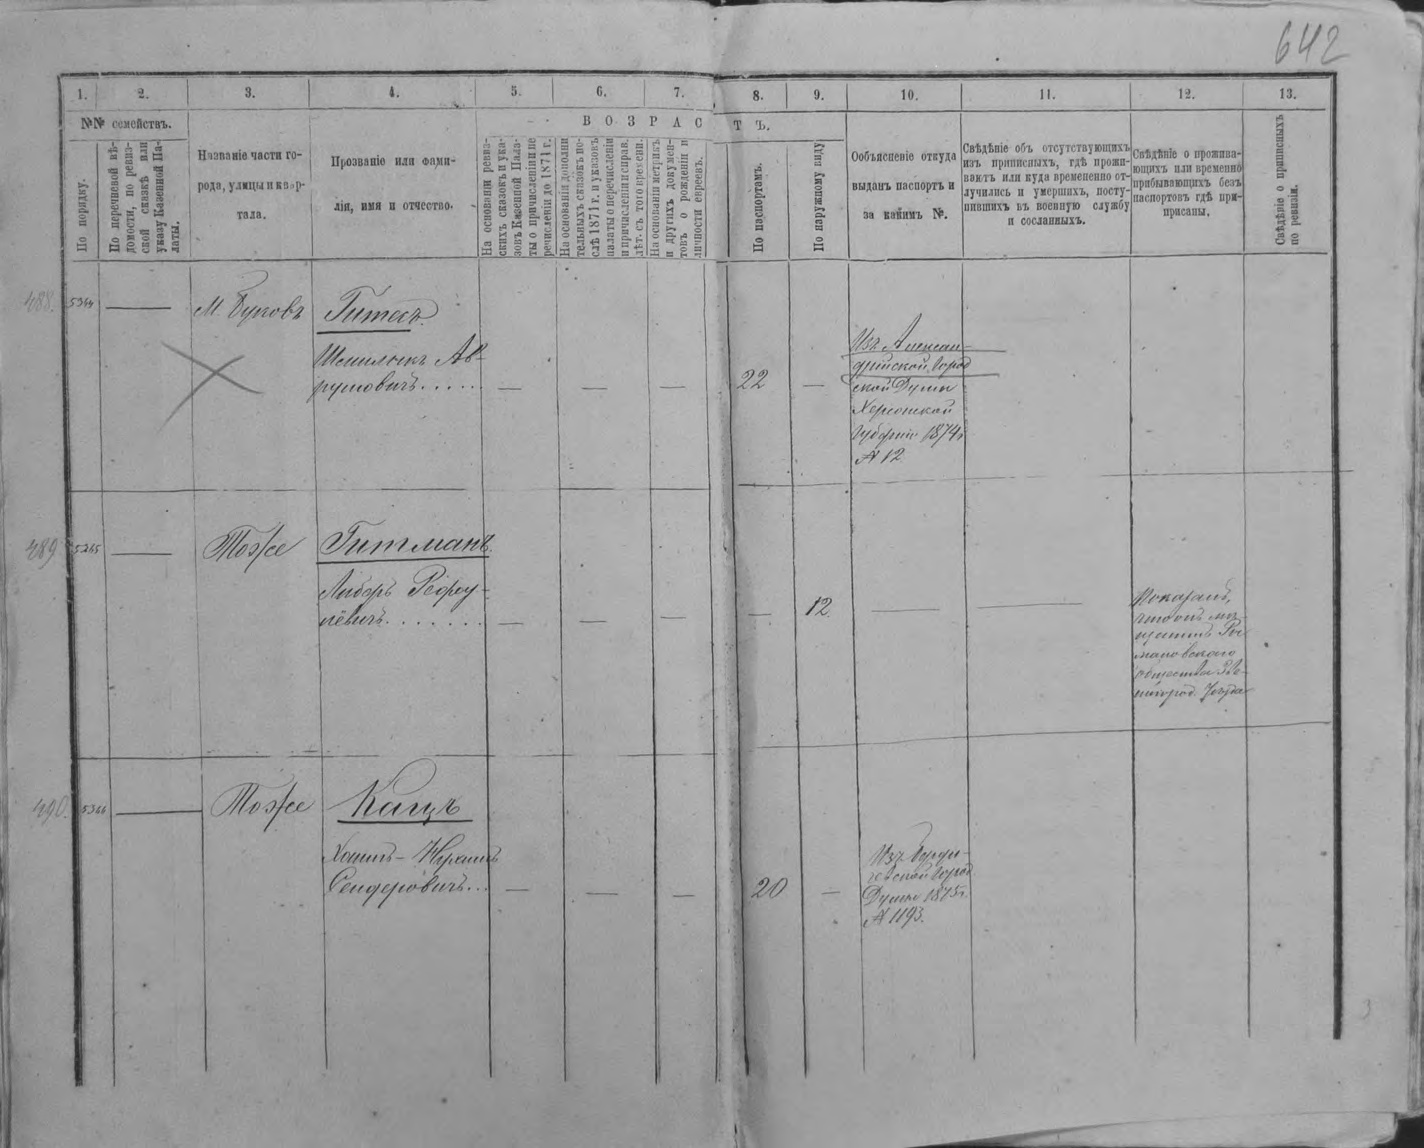 642
1. 2. 3. 4. 5. 6. 7. 8. 9. 10. 11. 12. 13.
№№ семействъ.
ВОЗРАСТЪ.
По порядку.
По перечневой вѣ-
домости, по ревиз-
ской сказкѣ или
указу Казенной Па-
латы.
Названіе части го-
рода, улицы и квар-
тала.
Прозваніе или фами-
лія, имя и отчество.
На основаніи ревиз-
скихъ сказокъ и ука-
зовъ Казенной Пала-
ты о причисленіи и пе
речисленіи до 1871 г.
На основаніи дополни
тельныхъ сказокъ по-
слѣ 1871 г. и указовъ
палаты о перечисленіи
и причисленіи и справ.
лѣт. съ того времени.
На основаніи метрикъ
и другихъ докумен-
товъ о рожденіи и
личности евреевъ.
По паспортамъ.
По наружному виду
Оъбясненіе откуда
выданъ паспортъ и
за какимъ №.
Свѣдѣніе объ отсутствующихъ
изъ приписныхъ, гдѣ прожи-
ваютъ или куда временно от-
лучились и умершихъ, посту-
пившихъ въ военную службу
и сосланныхъ.
Свѣдѣніе о прожива-
ющихъ или временно
прибывающихъ безъ
паспортовъ гдѣ при-
приписаны.
Свѣдѣніе о приписныхъ
по ревизіи.
488. 5364 — М. Буковъ Гитесъ.
Шмилыкъ Ав-
румовичъ..... — — — 22 —
Изъ Алексан-
дрійской Город
ской Думы
Херсонской
Губерніи 1874 г
№ 12
489 5365 — Тоже Гитманъ.
Либеръ
....... — — — — 12. — —
Показалъ,
что онъ мѣ-
щанинъ Ро
мановскаго
общества Зве-
нигород. Уѣзда
490. 5366 — Тоже Кацъ
Хаимъ-Нухимъ
Сендеровичъ... — — — 20 —
Изъ Берди-
чевской Город
Думы 1875 г.
№ 1193.
3